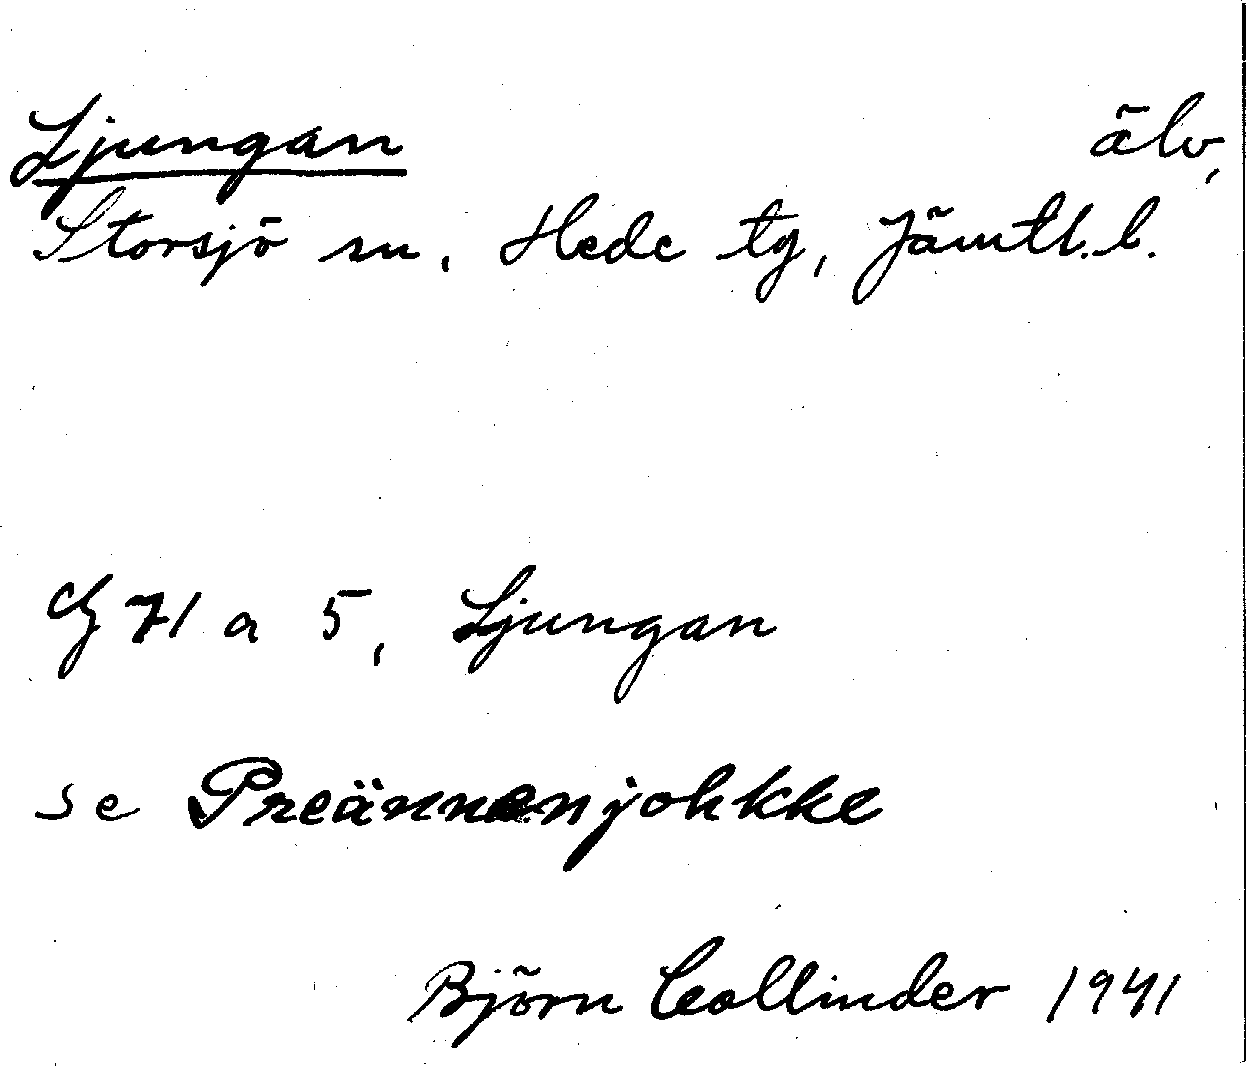 Ljungan älv,
Storsjö sn, Hede tg, Jämtl. l.
Gf 71 a 5, Ljungan
se Preännenjohkke
Björn Collinder 1941